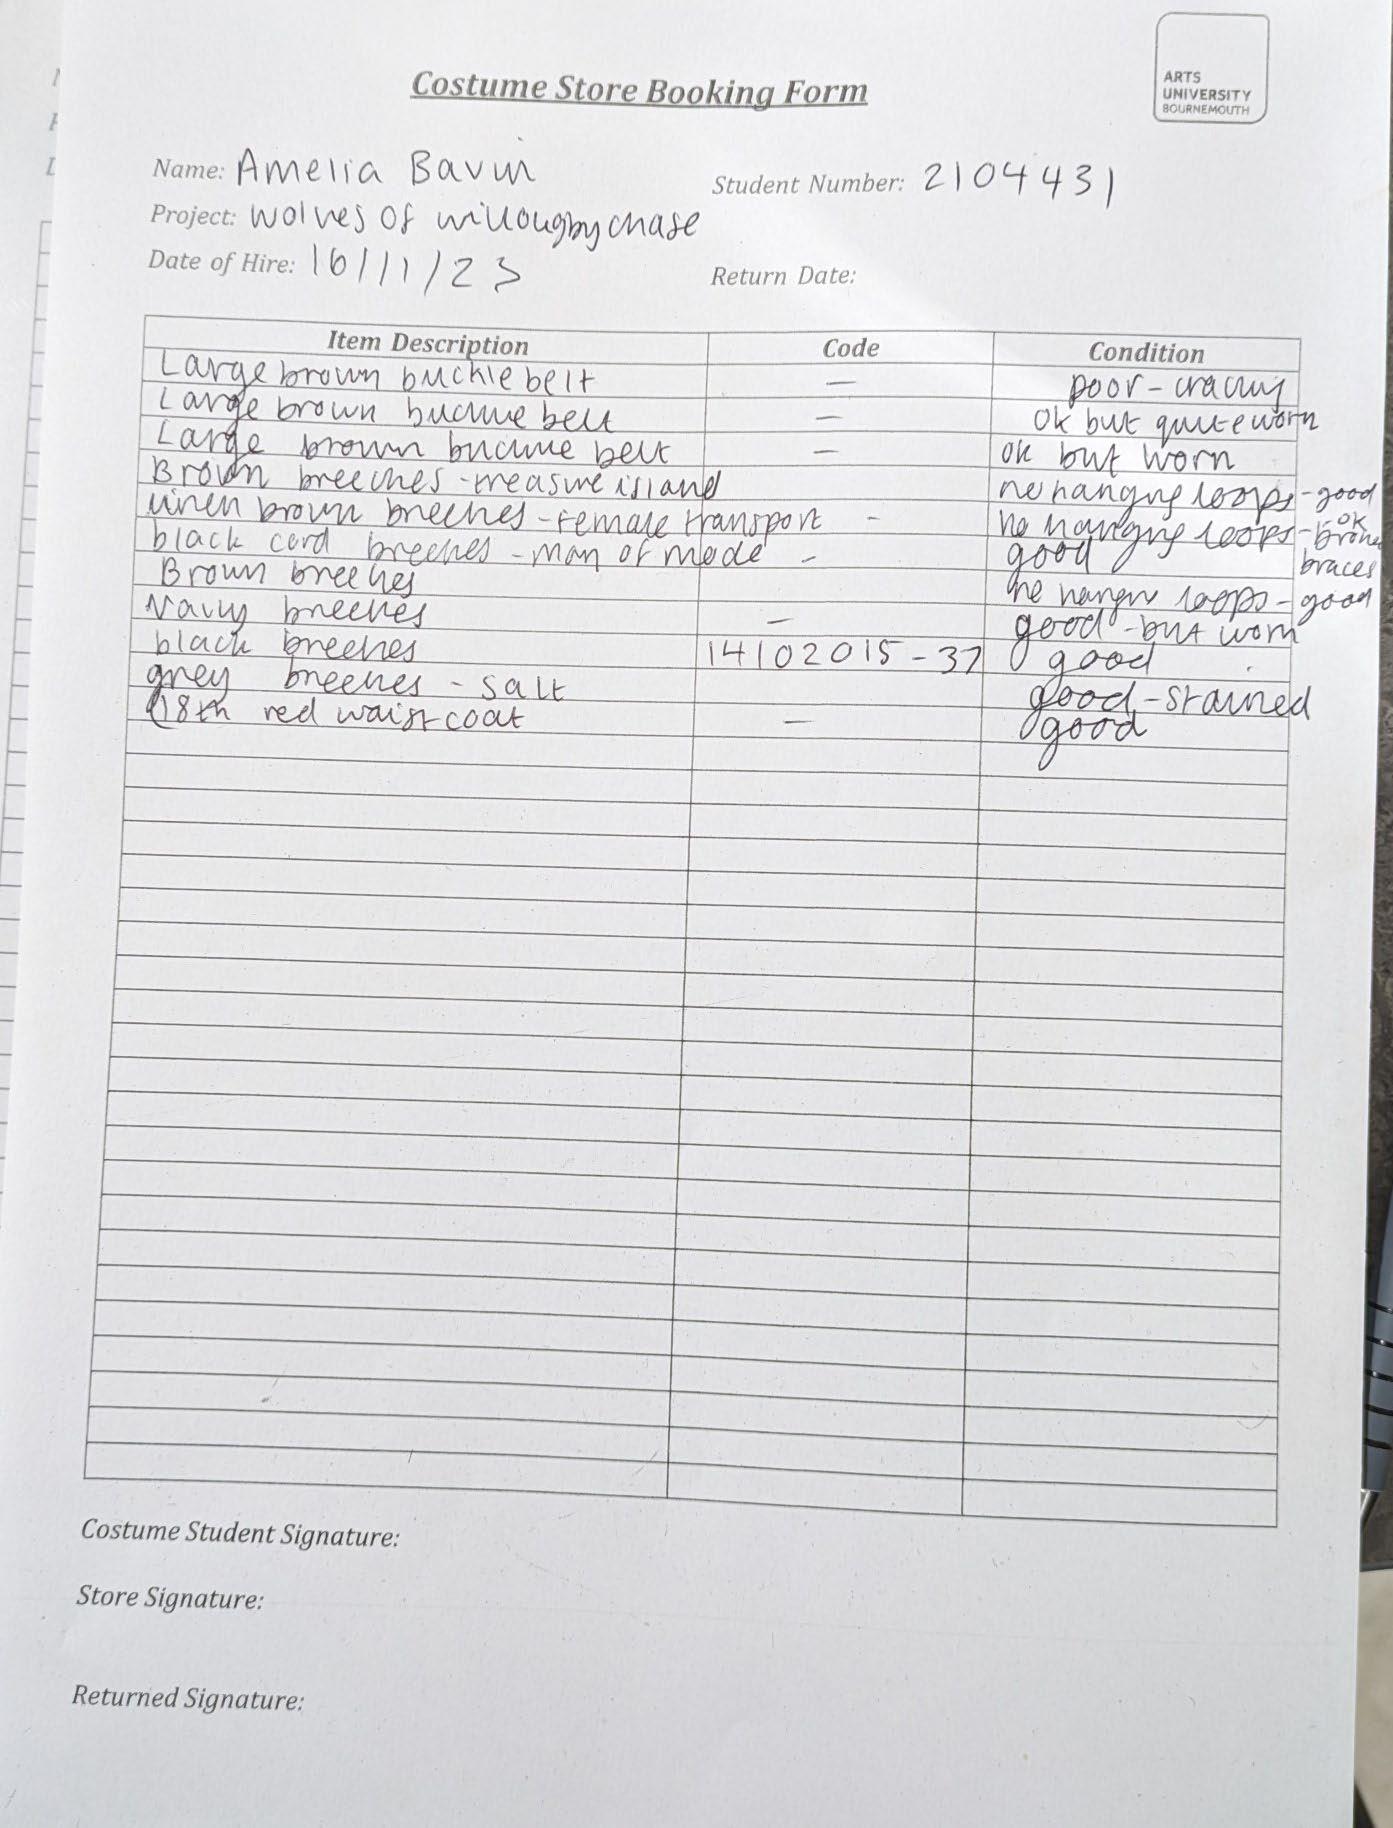 Costume Store Booking Form
ARTS
UNIVERSITY
BOURNEMOUTH
Name: Amelia Bavin
Student Number: 2104431
Project: Wolves of willougby chase
Date of Hire: 16/11/23
Return Date:
Item Description Code Condition
Large brown buckle belt — poor - cracking
Large brown buckle belt — ok but quite worn
Large brown buckle belt — ok but worn
Brown breeches - treasure island no hanging loops - good
linen brown breeches - female transport - no hanging loops - ok broken braces
black cord breeches - man of mode - good
Brown breeches no hanging loops - good
Navy breeches — good - but worn
black breeches 14102015-37 good
grey breeches - salt good - stained
C18th red waistcoat — good
Costume Student Signature:
Store Signature:
Returned Signature: